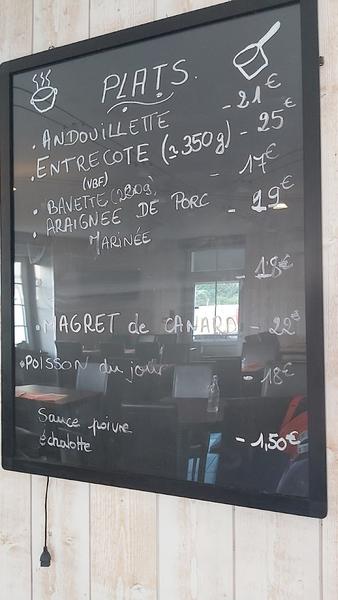 PLATS.
. ANDOUILLETTE - 21€
. ENTRECOTE (≃350g) - 25€
(VBF)
. BAVETTE - 17€
. ARAIGNEE DE PORC - 19€
MARINÉE
- 18€
. MAGRET de CANARD - 22€
. POISSON du jour - 18€
Sauce poivre
échalotte - 1,50€